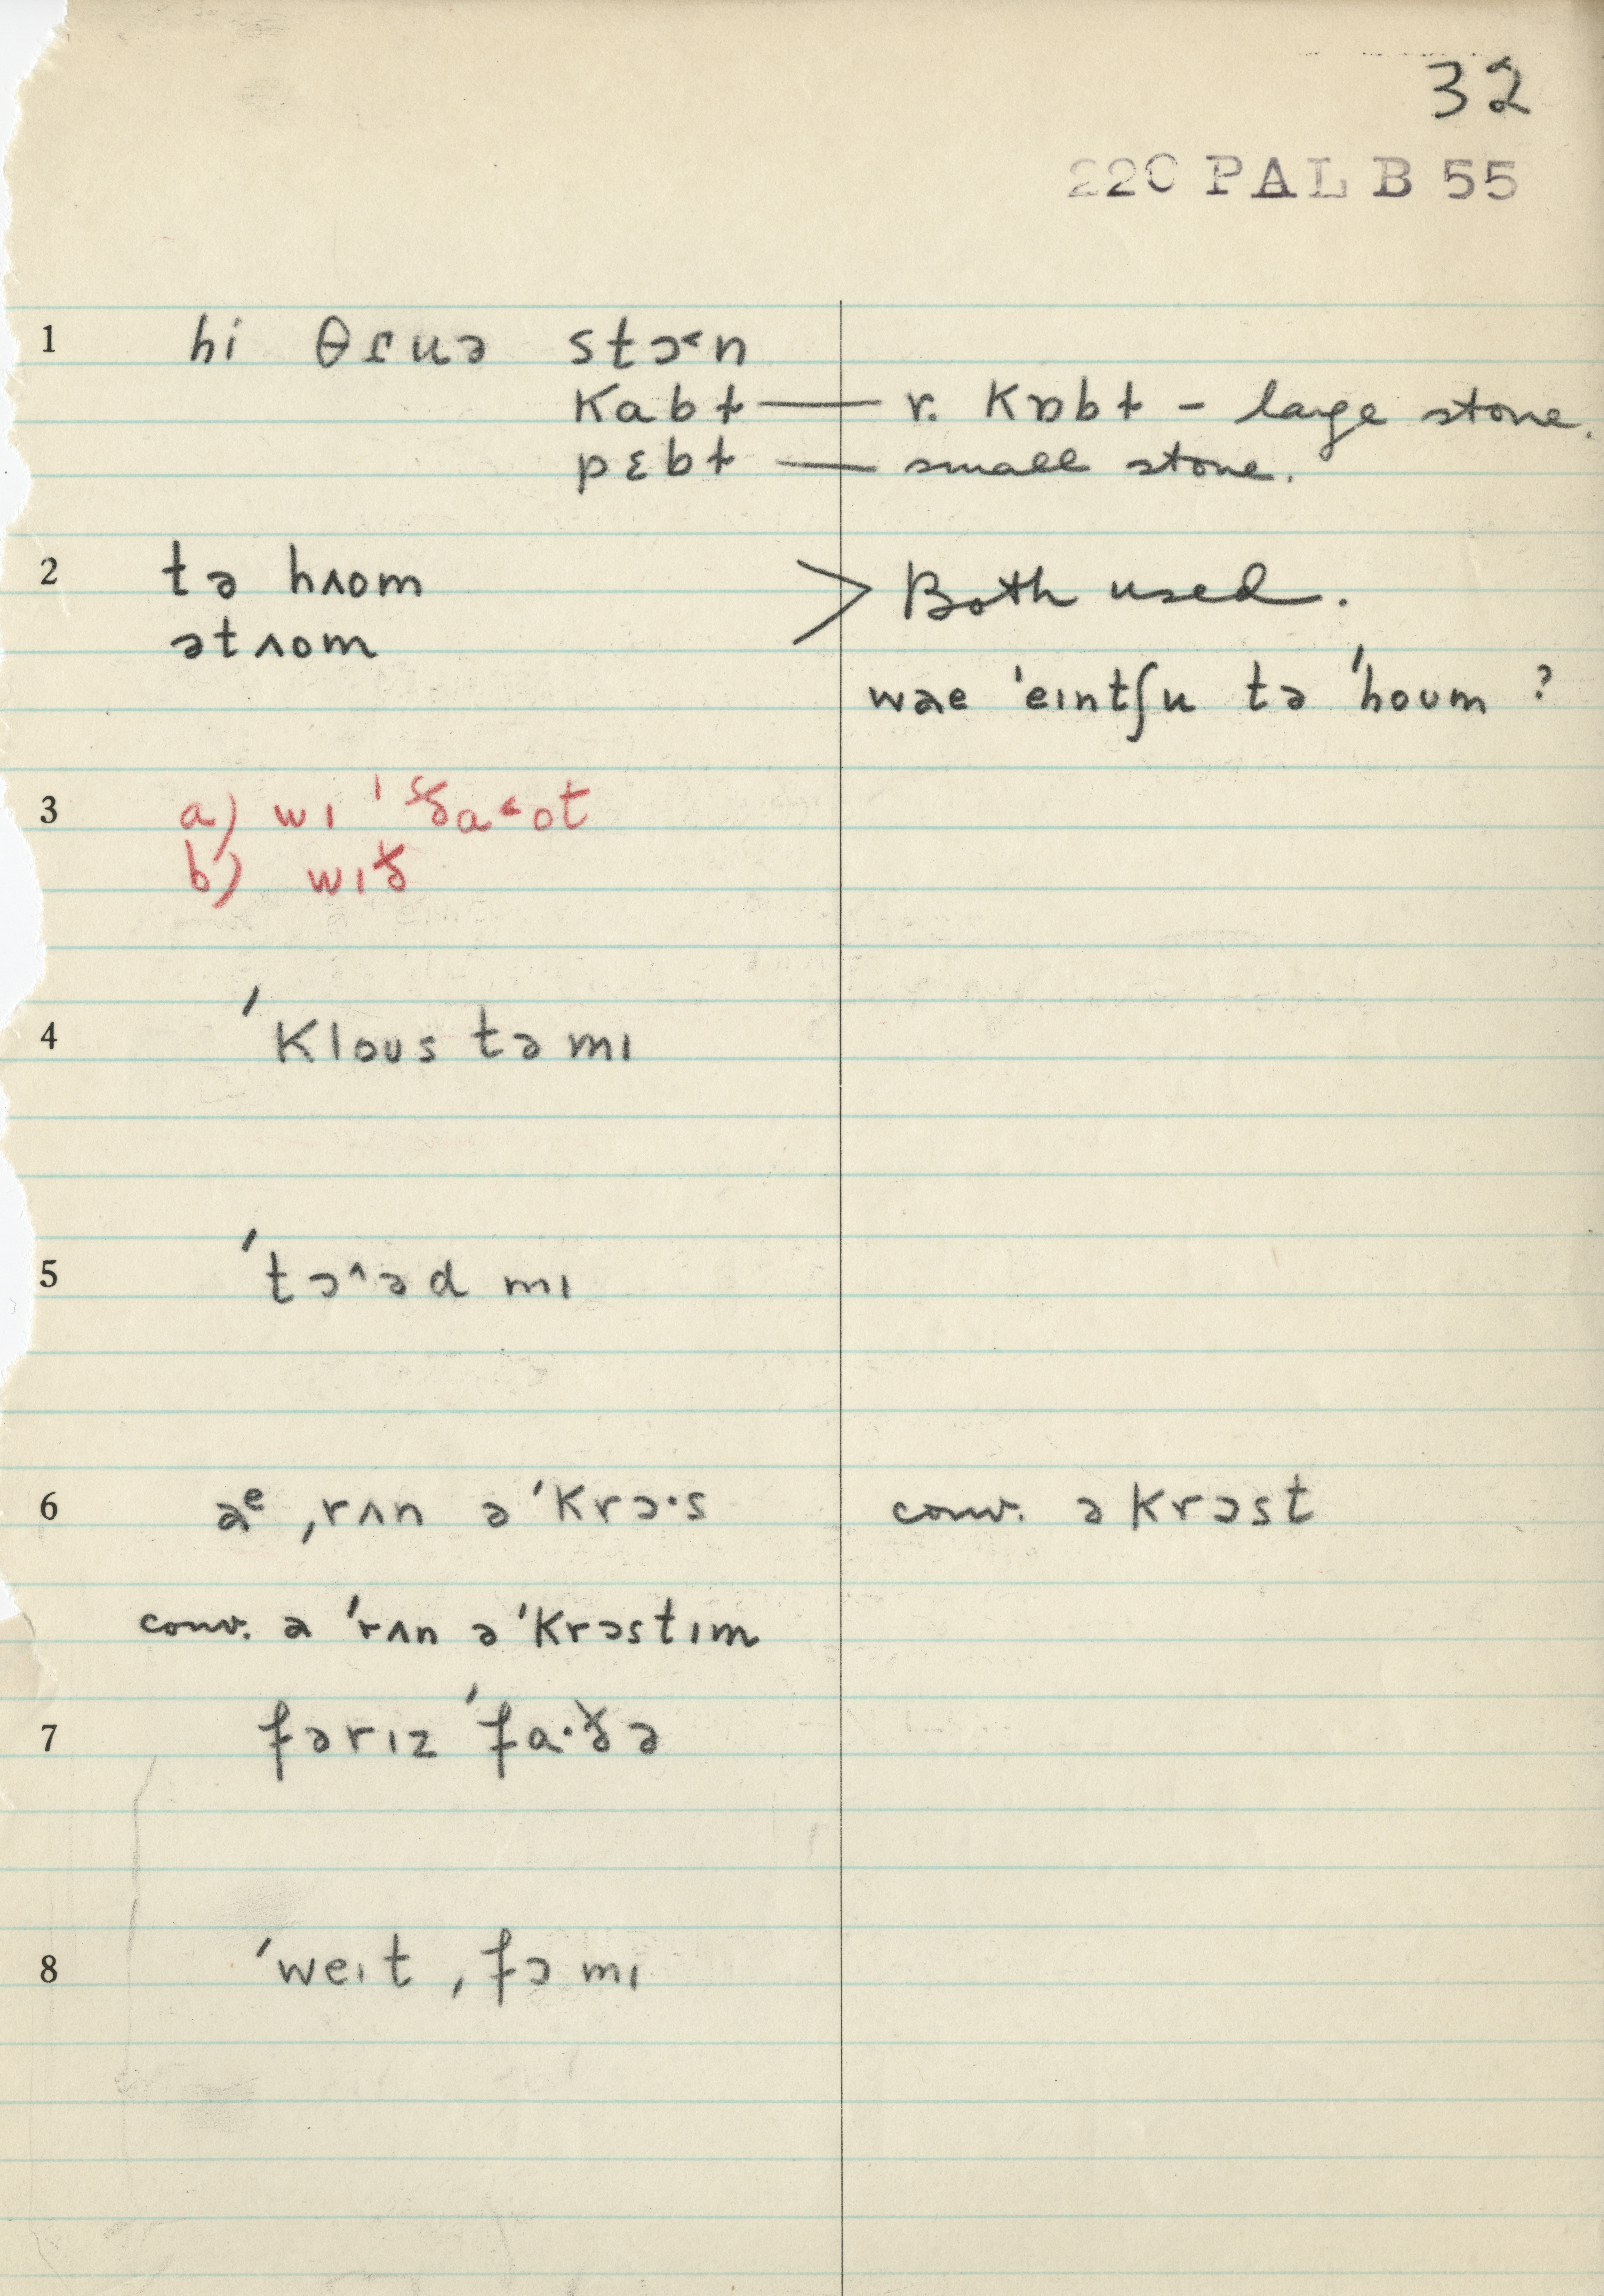 32
220 PAL B 55
1 hi θɾuə stɔ˂n
kabɫ — r. kɒbɫ - large stone.
pɛbɫ — small stone.
2 tə hʌom > Both used.
ətʌom
wəe ˈeɪntʃu tə ˈhoʊm ?
3 a) wɪ
b) wɪð̞
4 ˈkləʊs tə mɪ
5 ˈtɔ˄əd mɪ
6 əᵉ ˌrʌn əˈkrɔ·s conv. əkrɔst
conv. ə ˈrʌn əˈkrɔstɪm
7 fərɪz ˈfa·ðə
8 ˈweɪt ˌfɔ mɪ